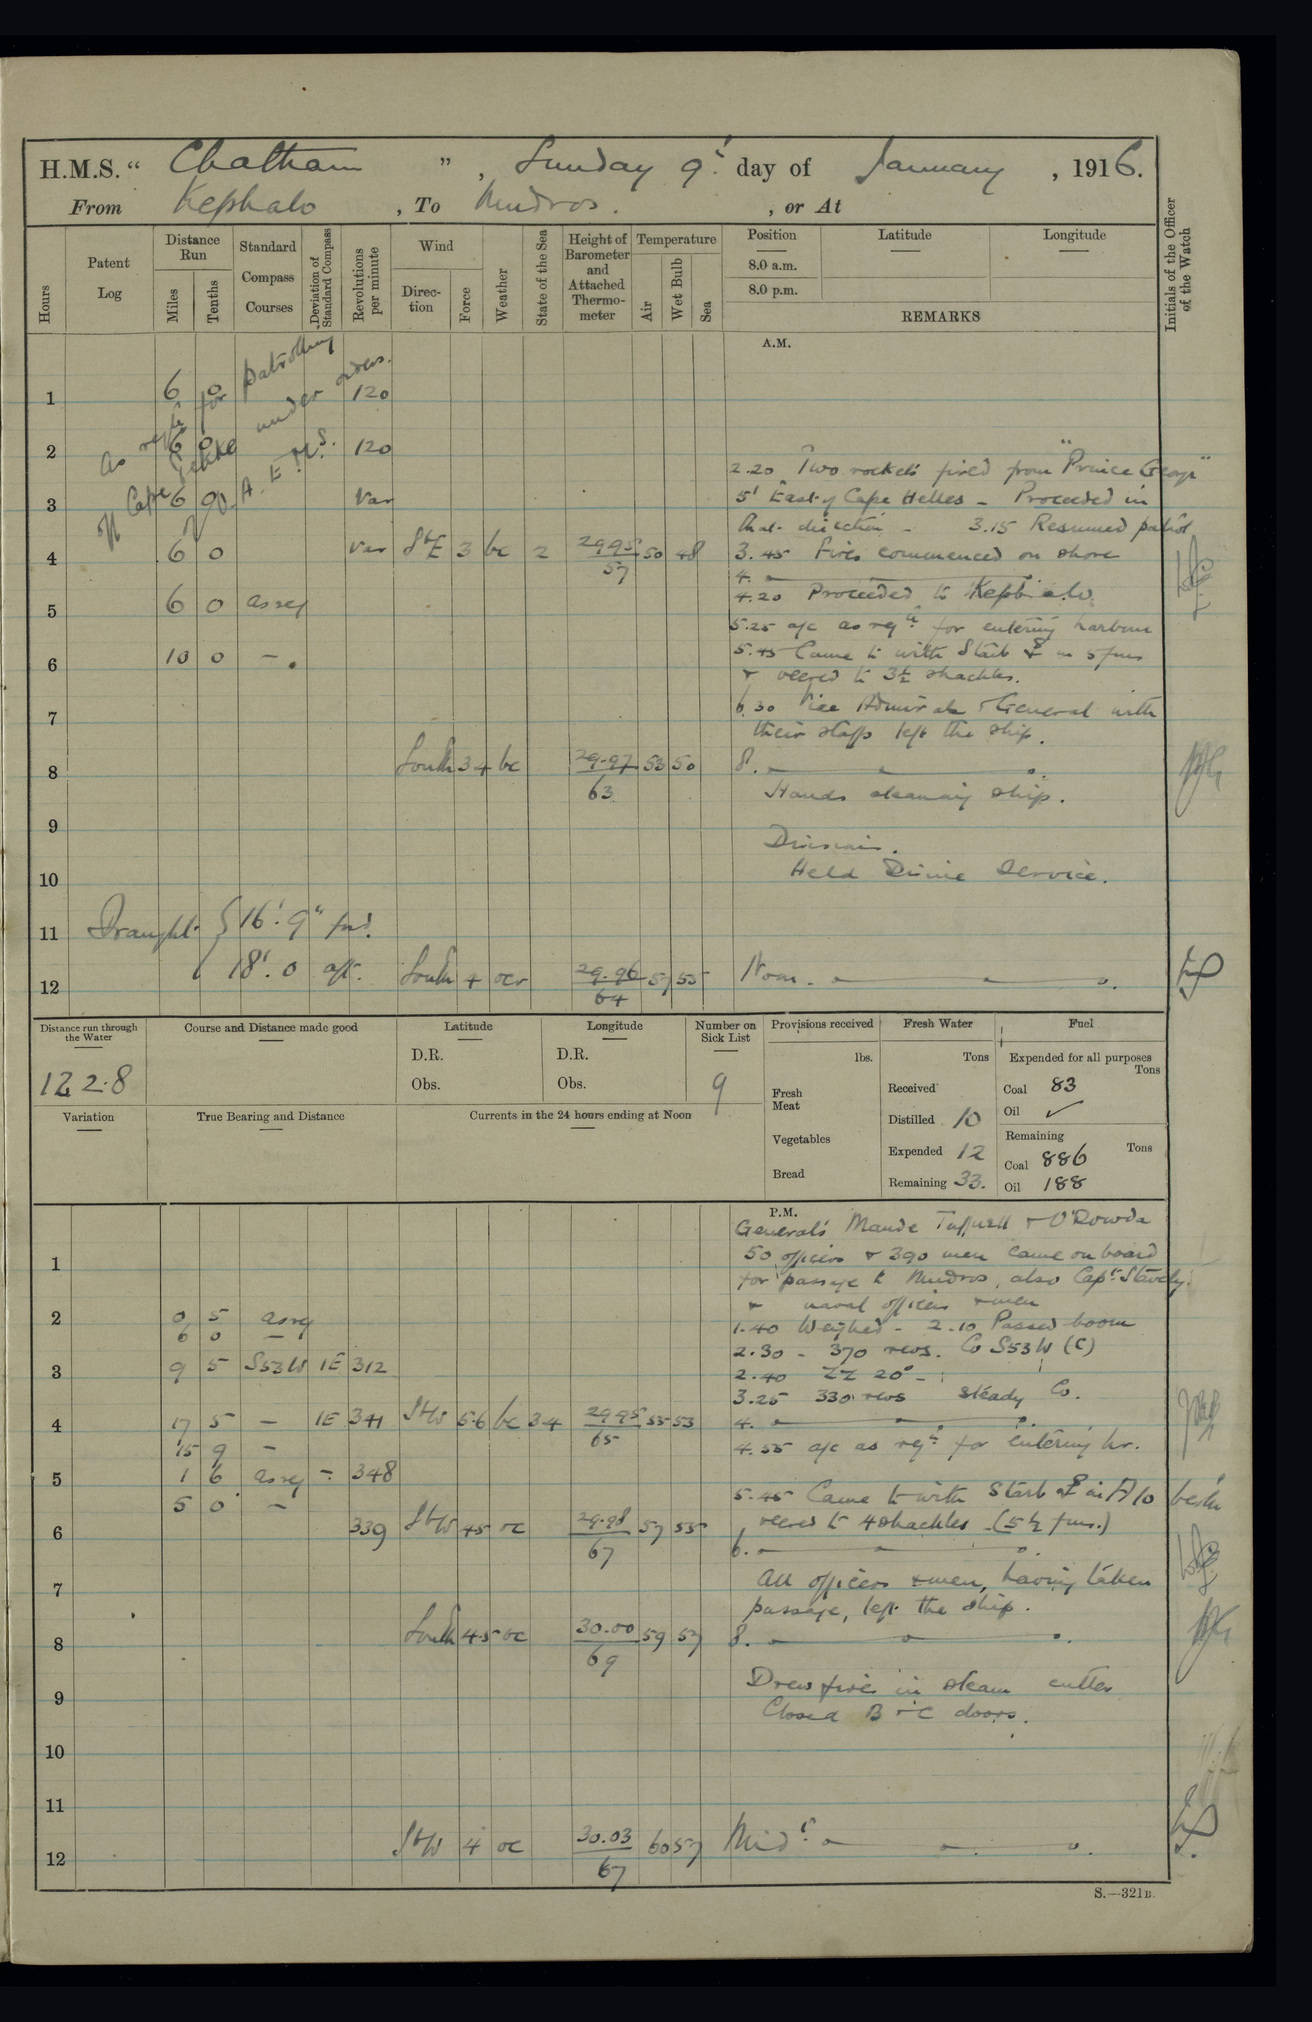 H.M.S. “ Chatham ” , Sunday 9th day of January , 1916.
From Kephalo , To Mudros . , or At
Hours
Patent Log
Distance Run
Miles
Tenths
Standard Compass Courses
Deviation of Standard Compass
Revolutions per minute
Wind
Direction
Force
Weather
State of the Sea
Height of Barometer and Attached Thermometer
Temperature
Air
Wet Bulb
Sea
Position
8.0 a.m.
8.0 p.m.
Latitude
Longitude
REMARKS
Initials of the Officer of the Watch
A.M.
As reqd for patrolling
off Cape Tekke under orders
of V.A. E.M.S.
1 6 0 120
2 6 0 120
2.20 Two rockets fired from "Prince George"
3 6 0 Var
5' East of Cape Helles - Proceeded in
that direction - 3.15 Resumed patrol
4 6 0 Var SbE 3 bc 2 29.95 57 50 48
3.45 Fires commenced on shore
4.
5 6 0 as req
4.20 Proceeded to Kephalo.
5.25 a/c as reqd for entering harbour
6 10 0 -
5.45 Came to with Starb ⚓ in 5 fms
& veered to 3½ shackles.
7
6.30 Vice Admirals & General with
their staffs left the ship.
8 South 3 4 bc 29.97 63 53 50
8.
Hands cleaning ship.
9
Divisions.
10
Held Divine Service.
11 Draught { 16'. 9" for'd.
18'. 0 aft.
12 South 4 ocr 29.96 64 57 55 Noon.
Distance run through the Water
122.8
Course and Distance made good
Latitude
D.R.
Obs.
Longitude
D.R.
Obs.
Number on Sick List
9
Variation
True Bearing and Distance
Currents in the 24 hours ending at Noon
Provisions received
lbs.
Fresh Meat
Vegetables
Bread
Fresh Water
Tons
Received
Distilled 10
Expended 12
Remaining 33.
Fuel
Expended for all purposes
Tons
Coal 83
Oil ✓
Remaining
Tons
Coal 886
Oil 188
P.M.
Generals Maude Tuffnell & O'Dowda
1
50 officers & 390 men came on board
for passage to Mudros, also Capt. Staveley
& naval officers & men
2 0 5 as req
6 0 -
1.40 Weighed - 2.10 Passed boom
2.30 - 370 revs. Co S53W (C)
3 9 5 S53W 1E 312
2.40 ZZ 20° -
3.25 330 revs steady Co.
4 17 5 - 1E 341 SbW 5.6 bc 3 4 29.95 65 55 53
4.
15 9 -
4.55 a/c as reqd for entering hr.
5 1 6 as req - 348
5 0 -
5.45 Came to with Starb ⚓ in A10 berth
6 339 SbW 4.5 oc 29.98 67 57 55
veered to 4 shackles (5½ fms.)
6.
7
All officers & men, having taken
passage, left the ship.
8 South 4.5 oc 30.00 69 59 57
8.
9
Drew fires in steam cutter
Closed B & C doors.
10
11
12 SbW 4 oc 30.03 67 60 57 Midt.
S.—321B.